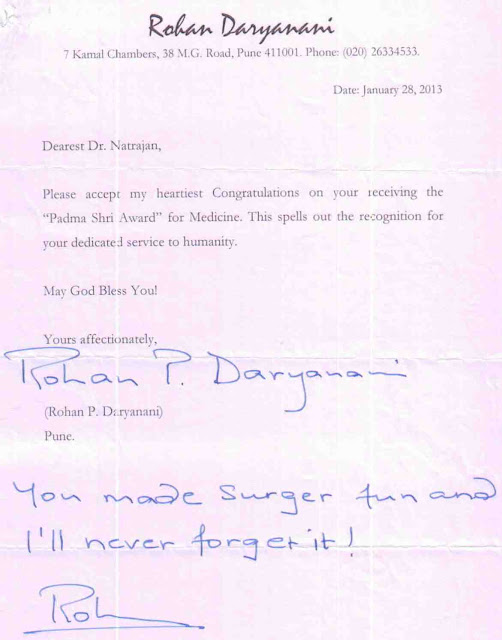 Rohan Daryanani
7 Kamal Chambers, 38 M.G. Road, Pune 411001. Phone: (020) 26334533.
Date: January 28, 2013
Dearest Dr. Natrajan,
Please accept my heartiest Congratulations on your receiving the
“Padma Shri Award” for Medicine. This spells out the recognition for
your dedicated service to humanity.
May God Bless You!
Yours affectionately,
Rohan P. Daryanani
(Rohan P. Daryanani)
Pune.
You made Surger fun and
I'll never forget it!
Roh